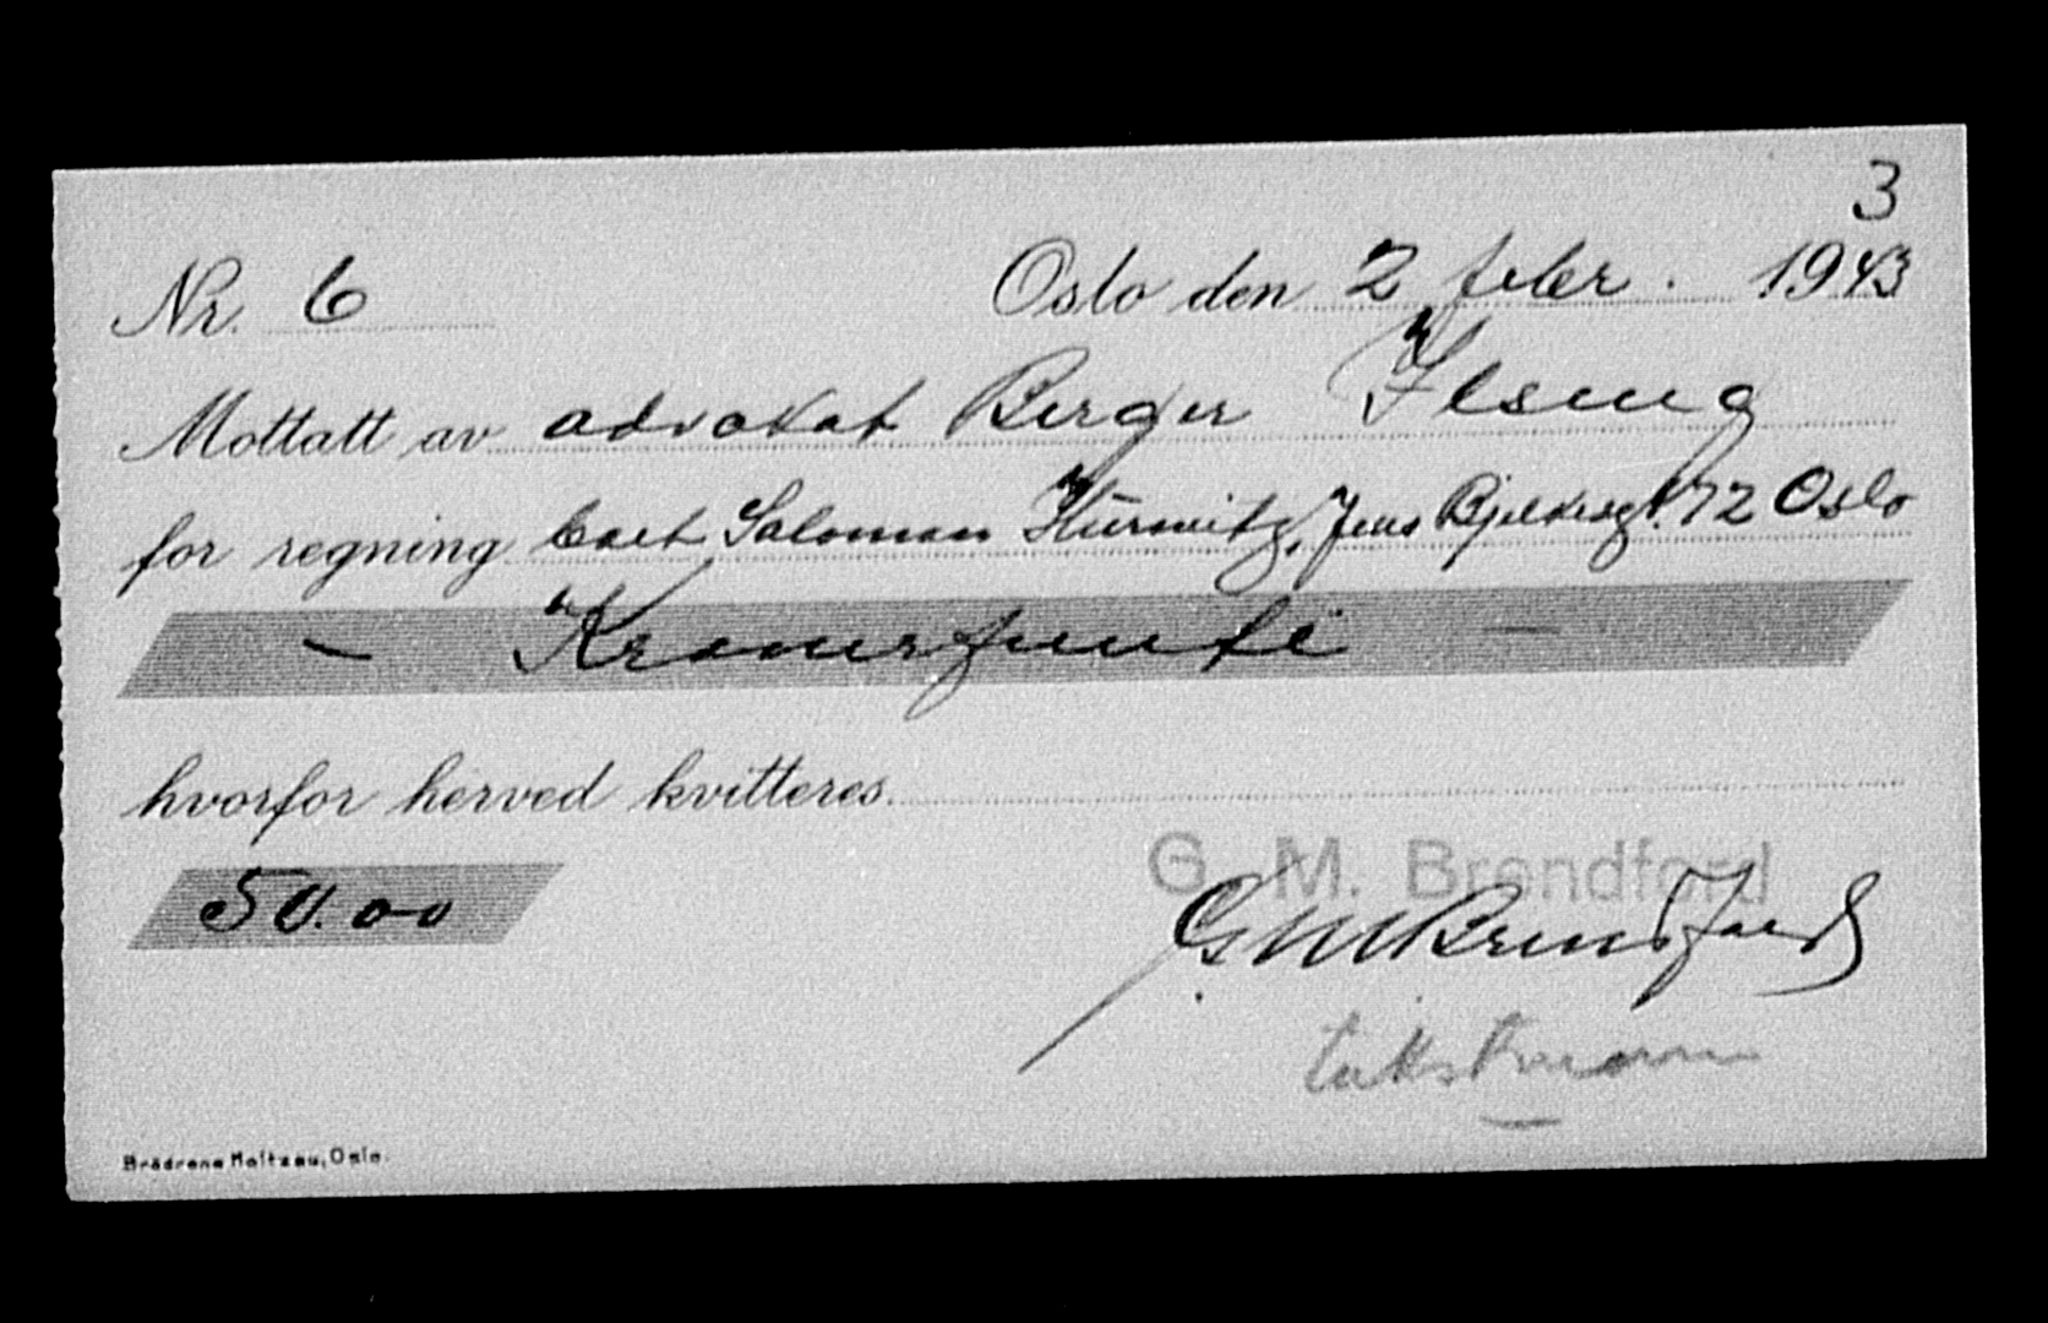 3
Nr. 6 Oslo den 2 febr. 1943
Mottatt av advokat Berger Ilseng
for regning boet Salomon Hurwitz, Jens Bjelkesgt. 72 Oslo
- Kronerfemti -
hvorfor herved kvitteres
G. M. Brendford
50.00
G M Brendford
takstmann
Brödrene Holtzau, Oslo.